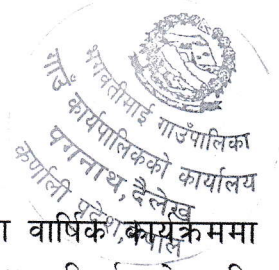 भगवतीमाई गाउँपालिका
गाउँ कार्यपालिकको कार्यालय
पगनाथ, दैलेख
कर्णाली प्रदेश, नेपाल
वार्षिक कार्यक्रममा